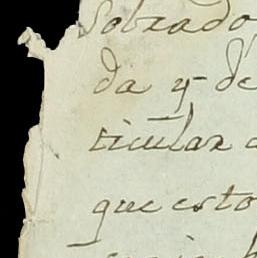 Sobrado
da y de
ticular
que esto